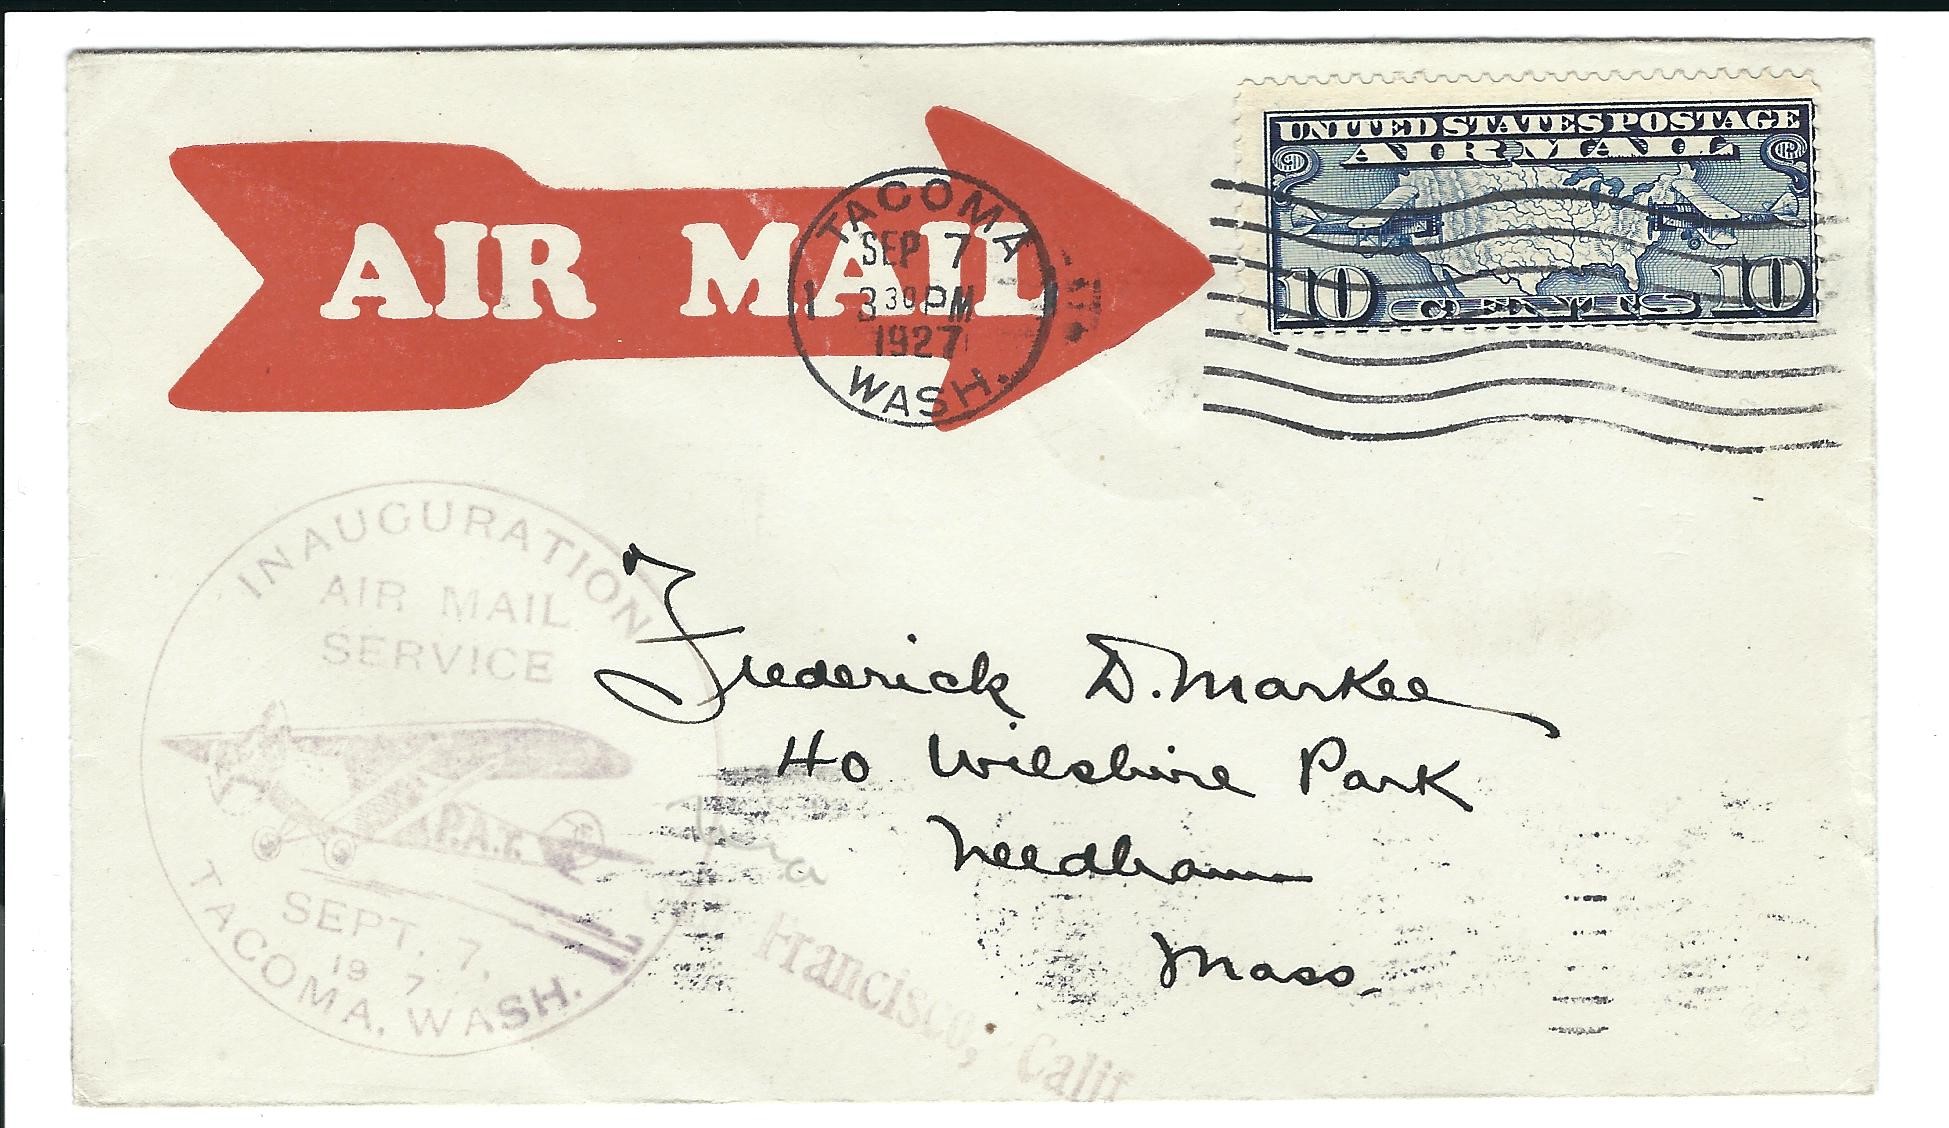 UNITED STATES POSTAGE
AIR MAIL
10 CENTS 10
AIR MAIL
TACOMA
SEP 7
1 3 30 PM
1927
WASH.
INAUGURATION
AIR MAIL
SERVICE
P.A.T.
SEPT. 7.
19 7
TACOMA, WASH.
Frederick D. Markee
40 Wilshire Park
Needham
Mass.
Via
Francisco, Calif